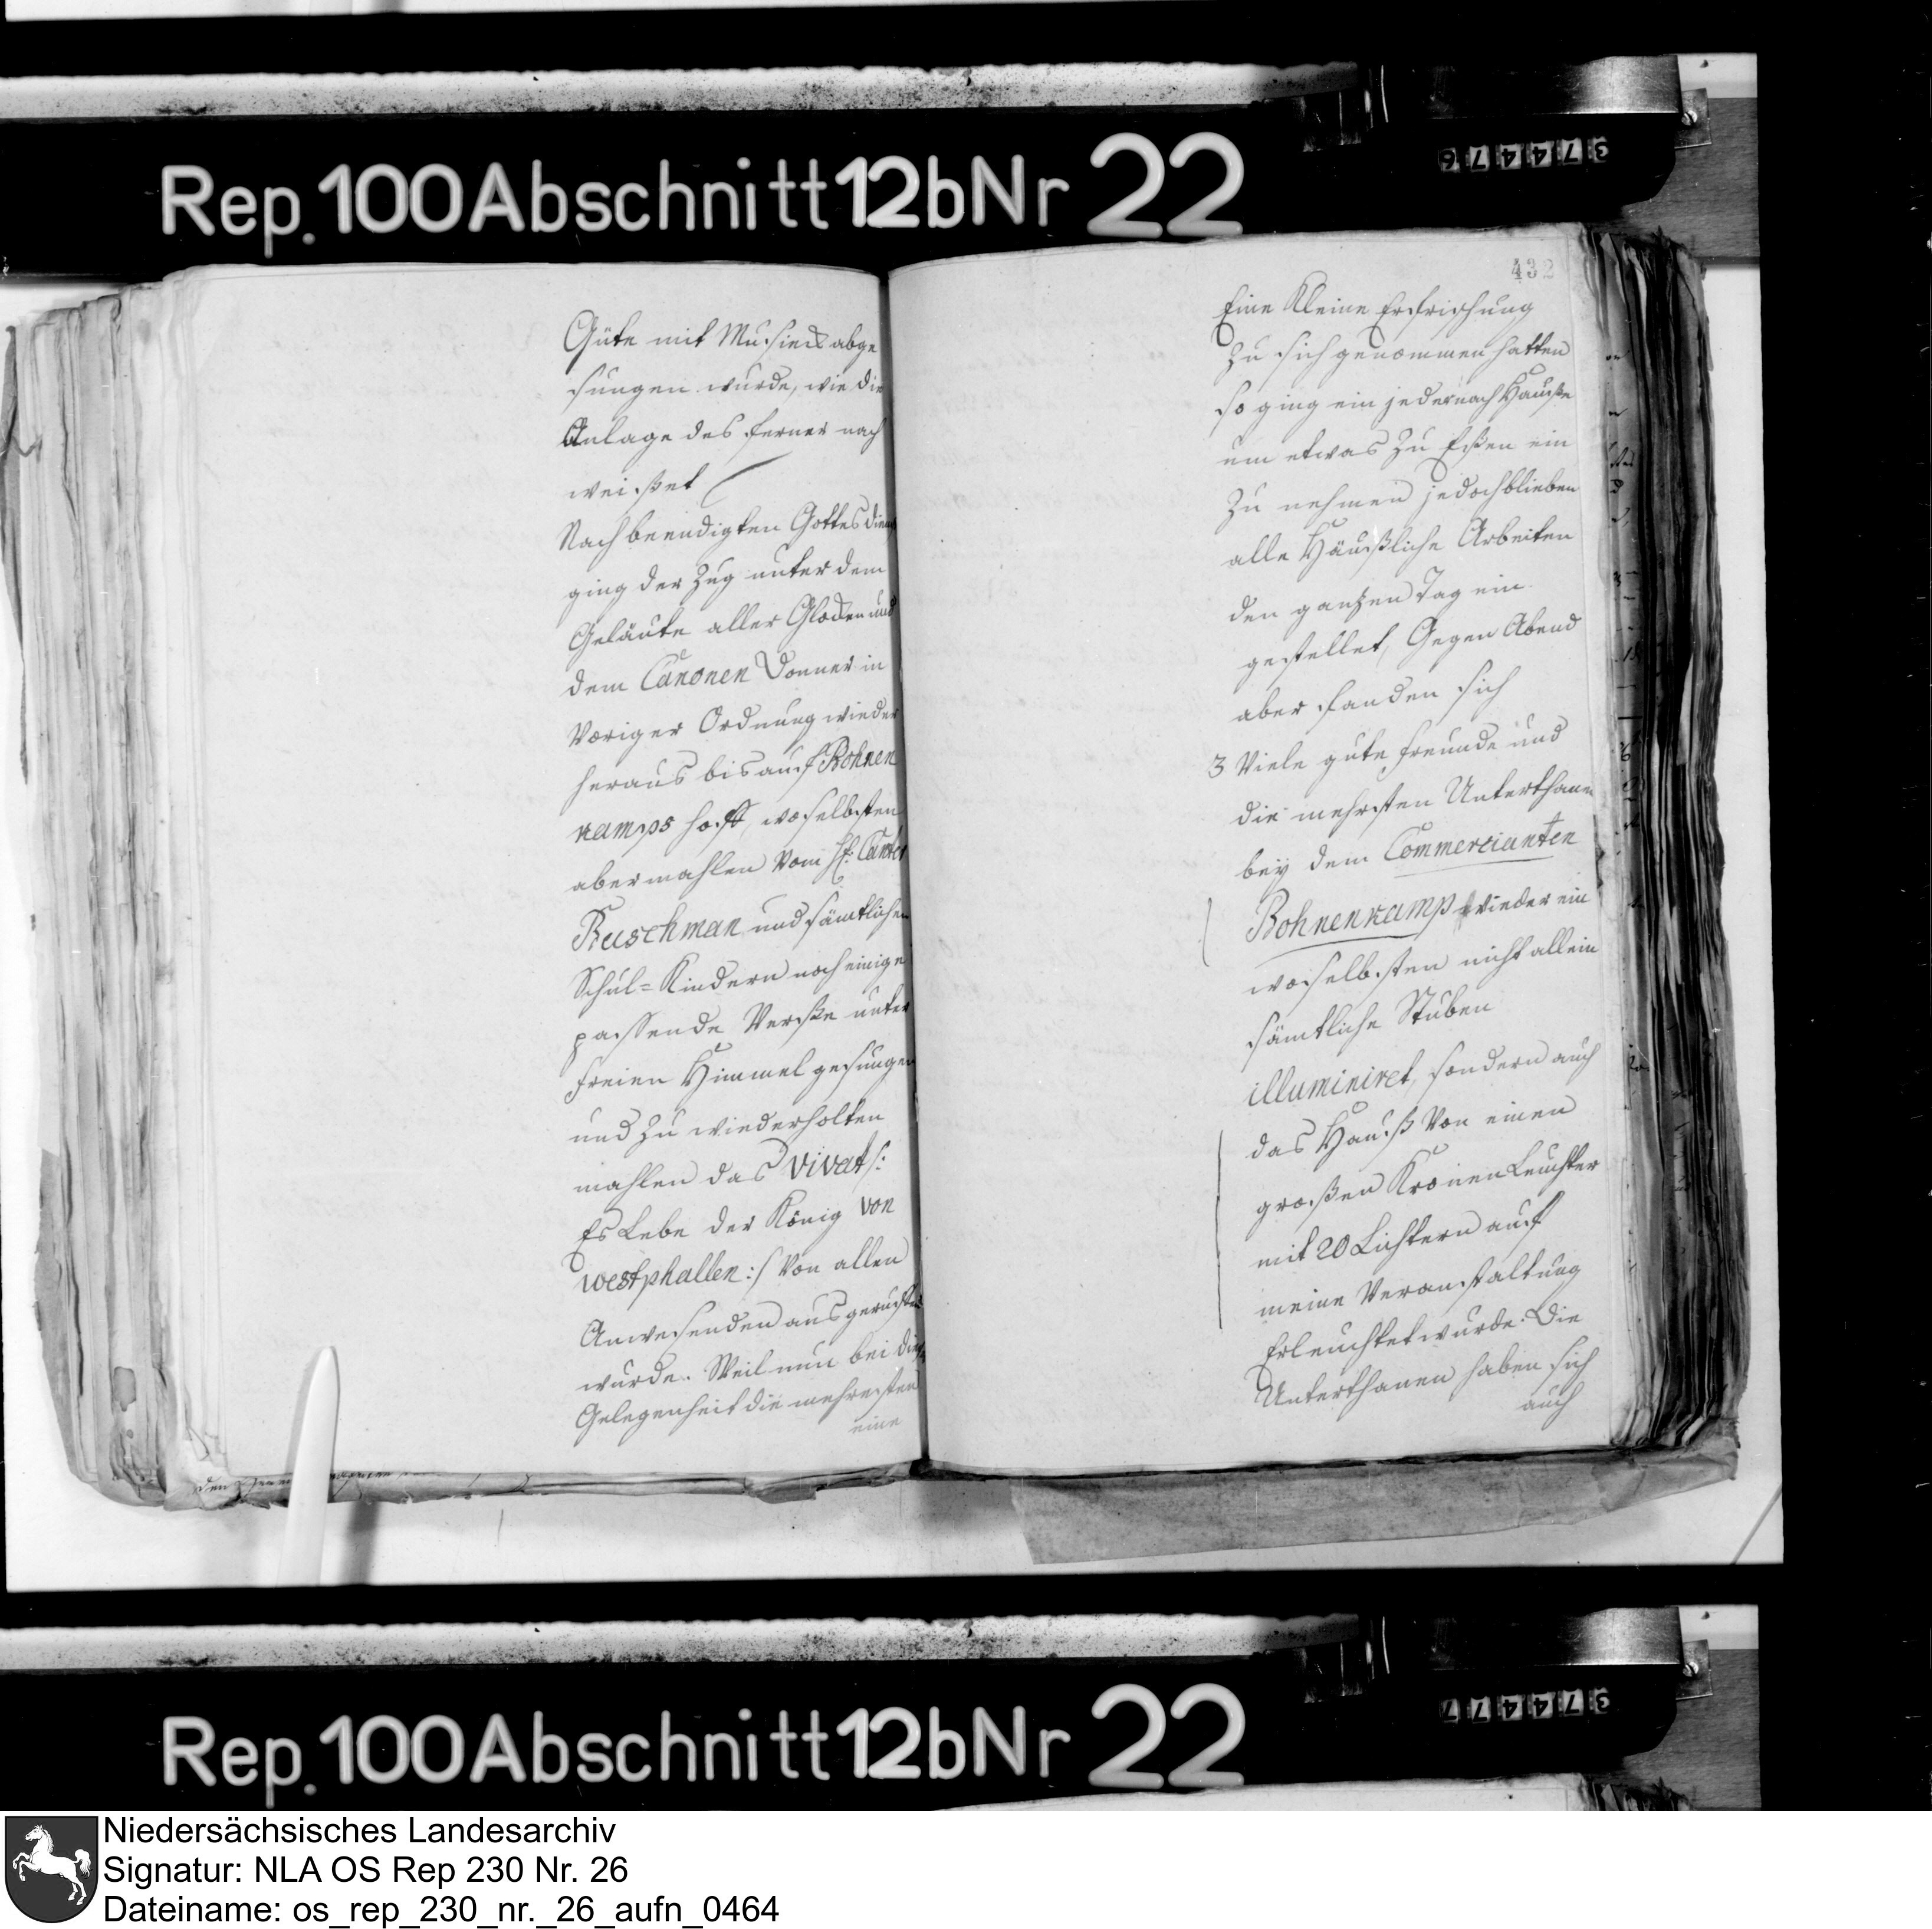 374476
Rep. 100 Abschnitt 12b Nr 22
Güte mit Musick abge
sungen wurde, wie die
Anlage des ferner nach
weißet
Nach beendigten Gottesdienst
ging der Zug unter dem
Geläute aller Glocken und
dem Canonen Donner in
Voriger Ordnung wieder
heraus bis auf Bohnen
kamps hoff, woselbsten
abermahlen Vom H: Cantor
Buschman und sämtlichen
Schul=Kindern noch einige
passende Verße unter
freien Himmel gesungen
und Zu wiederholten
mahlen das Vivat /:
Es Lebe der König von
westphallen :/ Von allen
Anwesenden ausgeruffen
wurde. Weil nun bei dieser
Gelegenheit die mehresten
eine
432
Eine Kleine Erfrischung
Zu sich genommen hatten
so ging ein jeder nach Hauße
um etwas Zu Eßen ein
Zu nehmen jedoch blieben
alle Häußliche Arbeiten
den ganzen Tag ein
gestellet, Gegen Abend
aber fanden sich
3 Viele gute freunde und
die mehrsten Unterthanen
bey dem Commercianten
Bohnenkamp wieder ein
woselbsten nicht allein
sämtliche Stuben
illuminiret, sondern auch
das Hauß Von einen
großen Kronen Leuchter
mit 20 Lichtern auf
meine Veranstaltung
Erleuchtet wurde. Die
Unterthanen haben sich
auch
374477
Rep. 100 Abschnitt 12b Nr 22
Niedersächsisches Landesarchiv
Signatur: NLA OS Rep 230 Nr. 26
Dateiname: os_rep_230_nr._26_aufn_0464